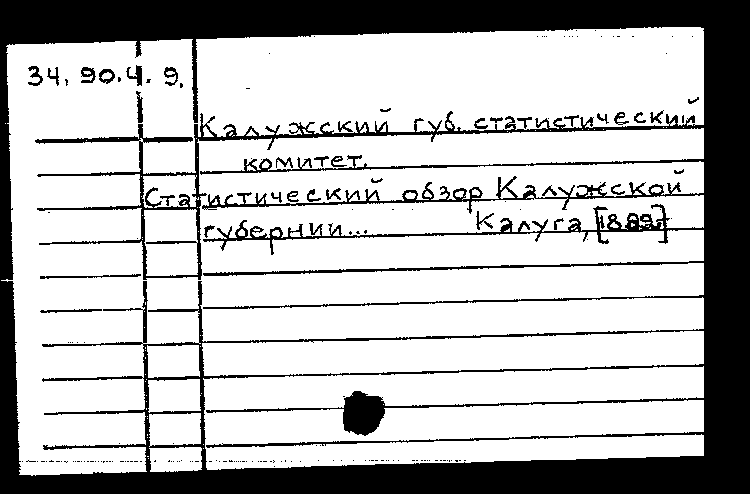 34. 90.4. 9.
Калужский губ. статистический
комитет.
Статистический обзор Калужской
губернии... Калуга,